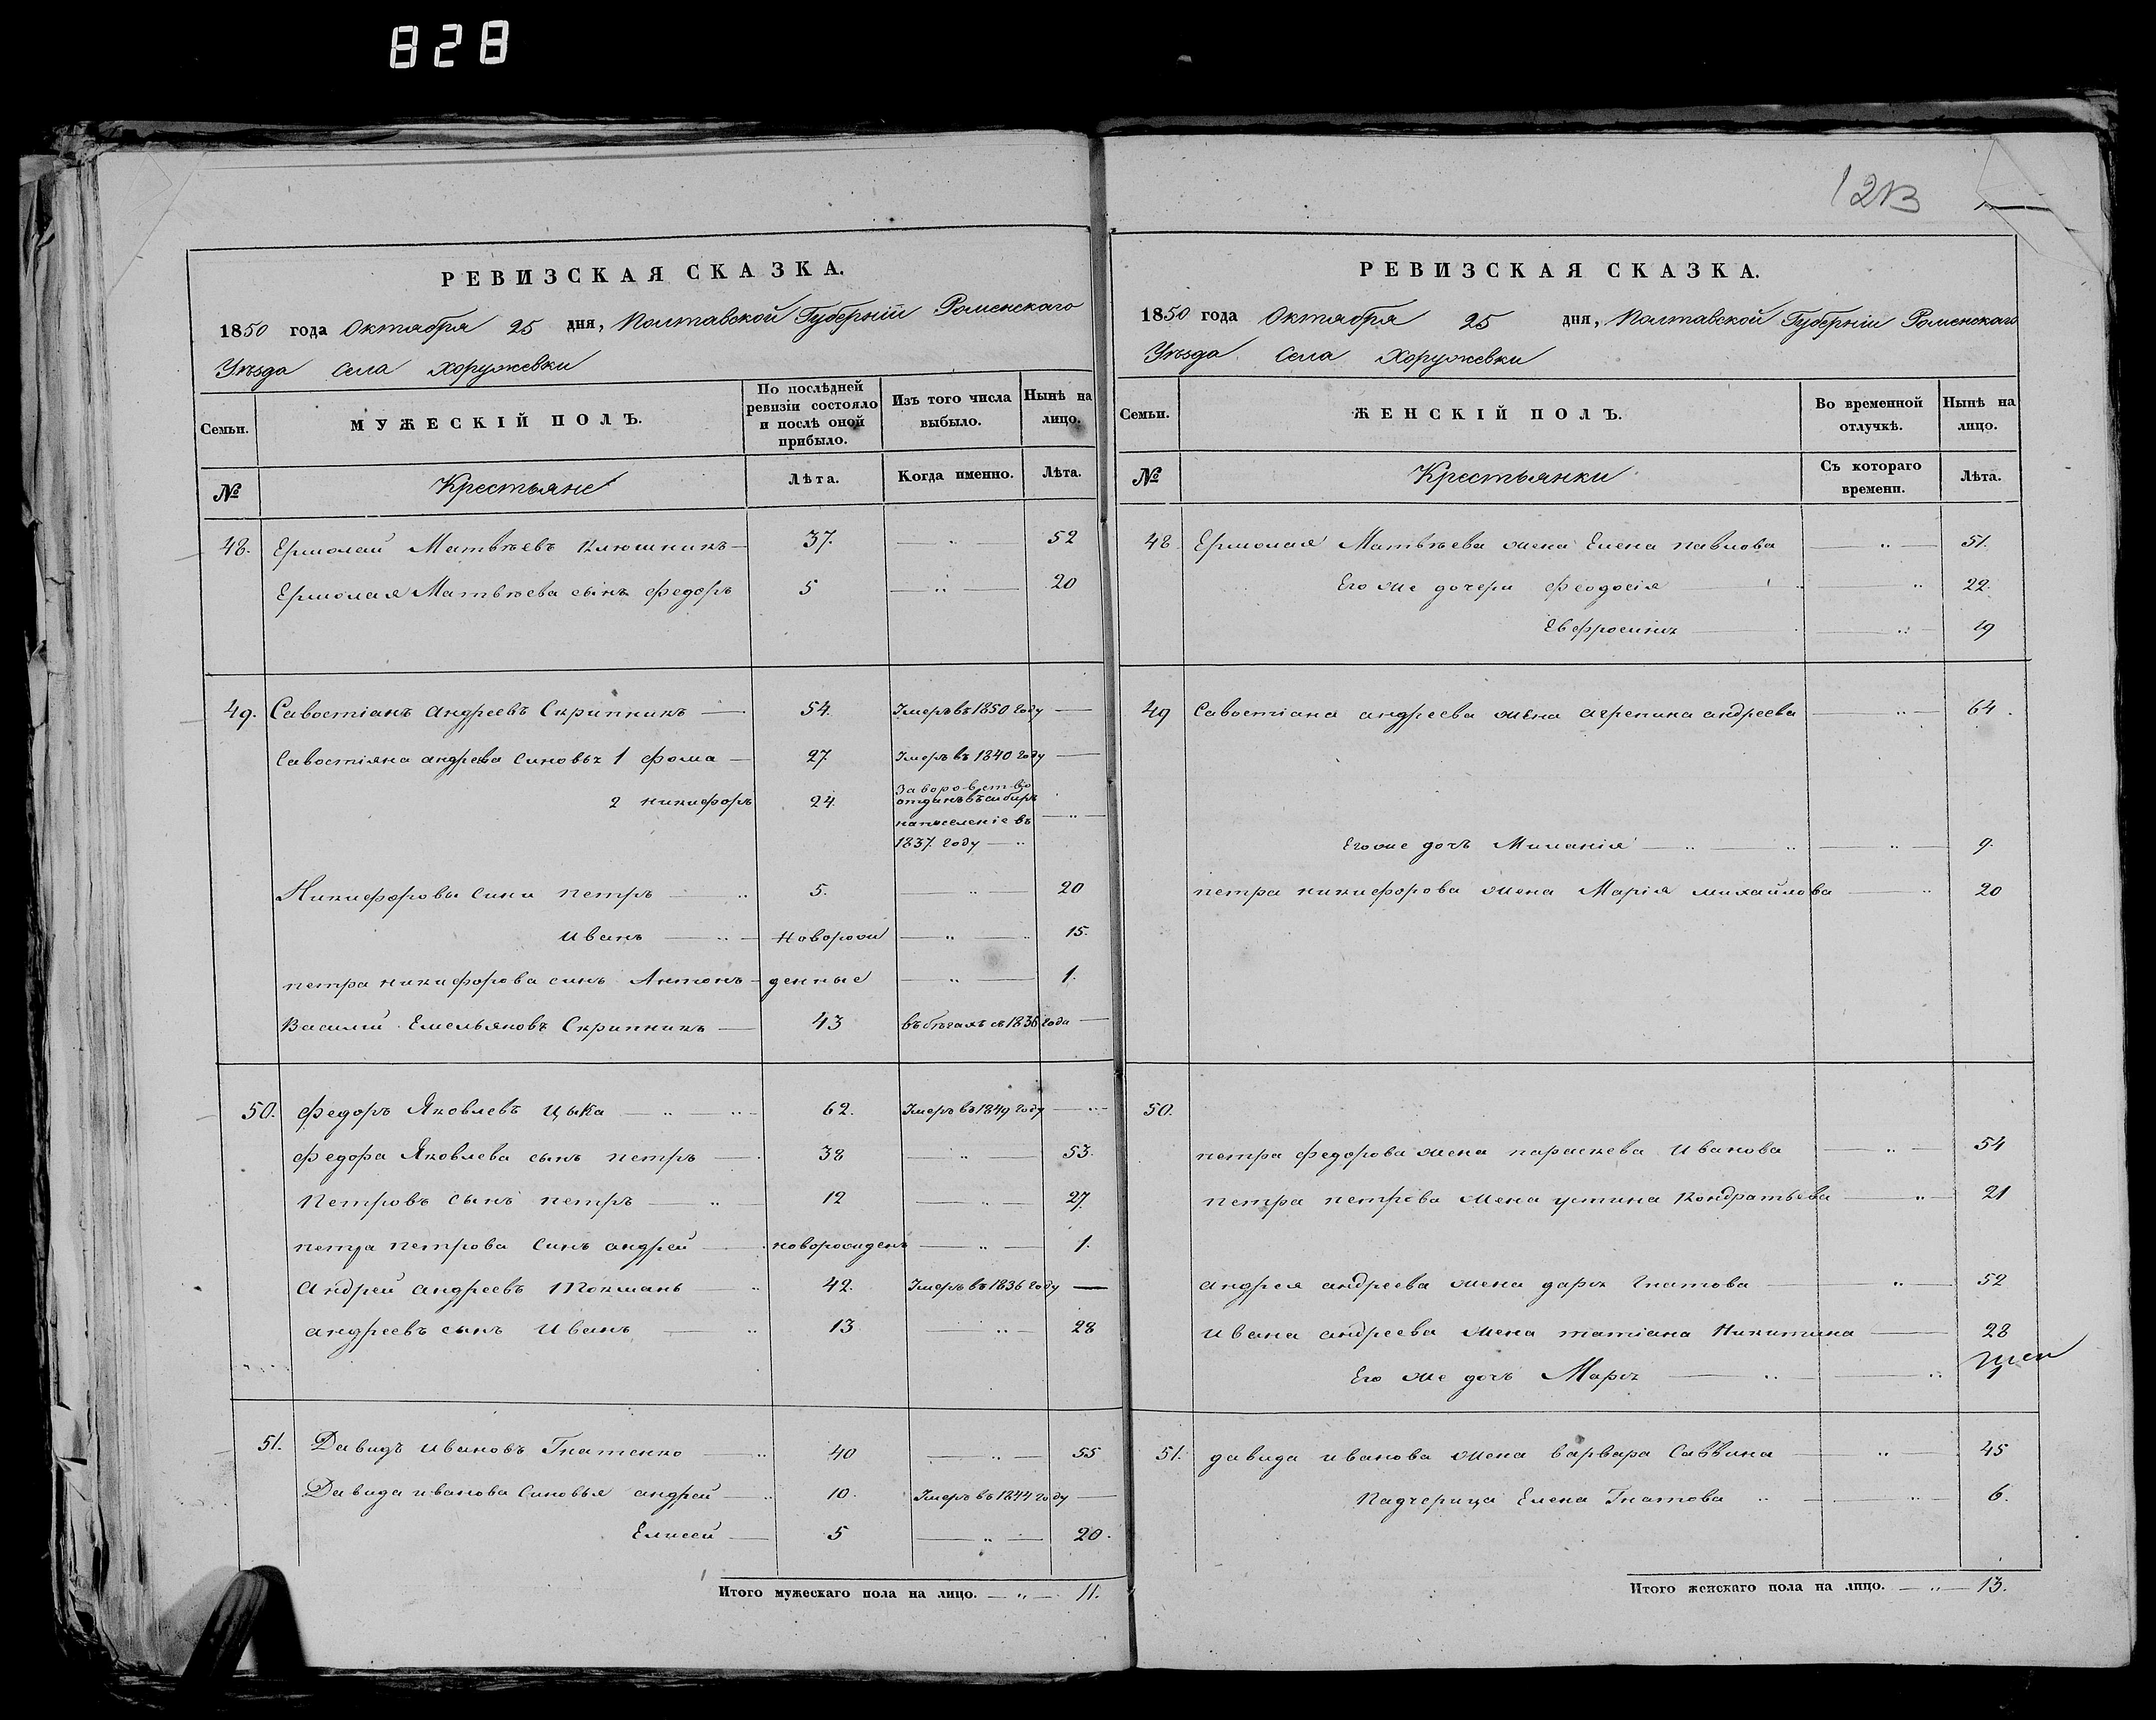 828
1213
РЕВИЗСКАЯ СКАЗКА.
1850 года Октября 25 дня, Полтавской Губерніи Роменскаго
Уѣзда Села Хоружевки
Семьи.
МУЖЕСКІЙ ПОЛЪ.
По послѣдней ревизіи состояло и послѣ оной прибыло.
Изъ того числа выбыло.
Нынѣ на лицо.
№
Крестьяне
Лѣта.
Когда именно.
Лѣта.
48. Ермолай Матвѣевъ Клюшникъ 37. — „ — 52
Ермолая Матвѣева сынъ федоръ 5 — „ — 20
49. Савостіанъ андреевъ Скрипникъ — 54. Умеръ въ 1850 году —
Савостіяна андреева синовъя 1 фома — 27 Умеръ въ 1840 году —
2 никифоръ 24. За воровство отданъ въ сибирь на поселеніе въ 1837 году — „ — „ —
Никифоровы сини петръ — „ 5. — „ — 20
иванъ — „ — Новорож — „ — 15.
петра никифорова синъ Антонъ - денные — „ — 1.
Василій Емельяновъ Скрипникъ — 43 въ бѣгахъ съ 1836 года —
50. федоръ Яковлевъ Цыка — „ — „ 62. Умеръ въ 1849 году — „ —
федора Яковлева сынъ петръ — 38 — „ — 53.
Петровъ сынъ петръ — „ — 12 — „ — 27.
петра петрова синъ андрей — новорожденъ — „ — 1.
Андрей андреевъ Токмань — „ 42. Умеръ въ 1836 году —
андреевъ сынъ Иванъ — „ 13 — „ — 28
51. Давидъ ивановъ Гнатенко — „ 40 — „ — 55
Давида иванова Синовья андрей — „ 10. Умеръ въ 1844 году —
Елисей — 5 — „ — 20.
Итого мужескаго пола на лицо. — „ — 11.
РЕВИЗСКАЯ СКАЗКА.
1850 года Октября 25 дня, Полтавской Губерніи Роменскаго
Уѣзда Села Хоружевки
Семьи.
ЖЕНСКІЙ ПОЛЪ.
Во временной отлучкѣ.
Нынѣ на лицо.
№
Крестьянки
Съ котораго времени.
Лѣта.
48. Ермолая Матвѣева жена Елена павлова — „ — 51.
Его же дочери феодосія — „ 22.
Евфросинъя — „ — 19
49 Савостіана андреева жена агрепина андреева — „ — 64.
Его же дочъ Миланія — „ — „ — „ — 9.
петра никифорова жена Марія михайлова — „ 20
50.
петра федорова жена параскева Иванова — „ — 54
петра петрова жена устина Кондратьева — „ — 21
андрея андреева жена даря Гнатова — „ — 52
ивана андреева жена татіана Никитина — 28
Его же дочъ Маря — „ — „
51. давида иванова жена варвара Саввина — „ — 45
Падчерица Елена Гнатова „ — „ — 6.
Итого женскаго пола на лицо. — „ — 13.